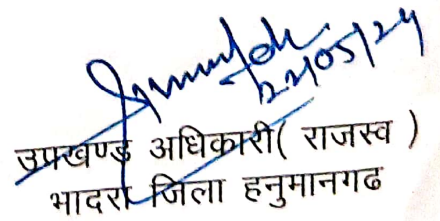 22/05/24
उपखण्ड अधिकारी( राजस्व )
भादरा जिला हनुमानगढ